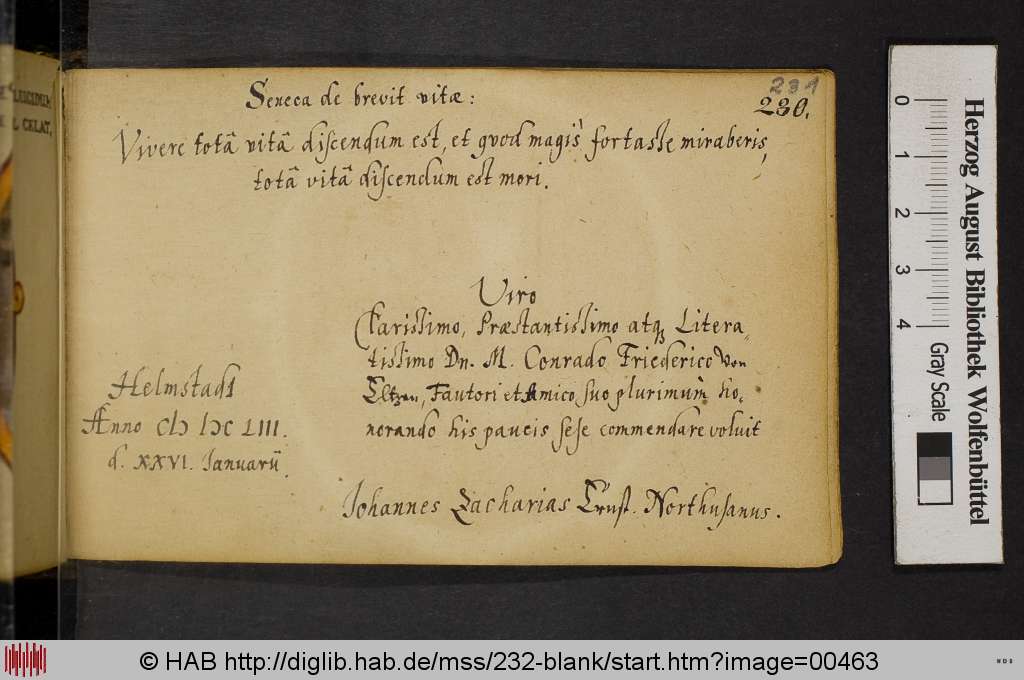 LESCEDEM
L CELAT,
231
230.
Seneca de brevit vitæ:
Vivere totâ vitâ discendum est, et qvod magis fortasse miraberis,
totâ vitâ discendum est mori.
Viro
Clarissimo, Præstantissimo atq; Litera„
tissimo Dn. M. Conrado Friederico Von
Eltzen, Fautori et Amico suo plurimùm ho„
norando his paucis sese commendare voluit
Johannes Zacharias Ernst. Northusanus.
Helmstadi
Anno CIↃ IↃC LIII.
d. XXVI. Januarii
0 1 2 3 4
Gray Scale
Herzog August Bibliothek Wolfenbüttel
© HAB http://diglib.hab.de/mss/232-blank/start.htm?image=00463